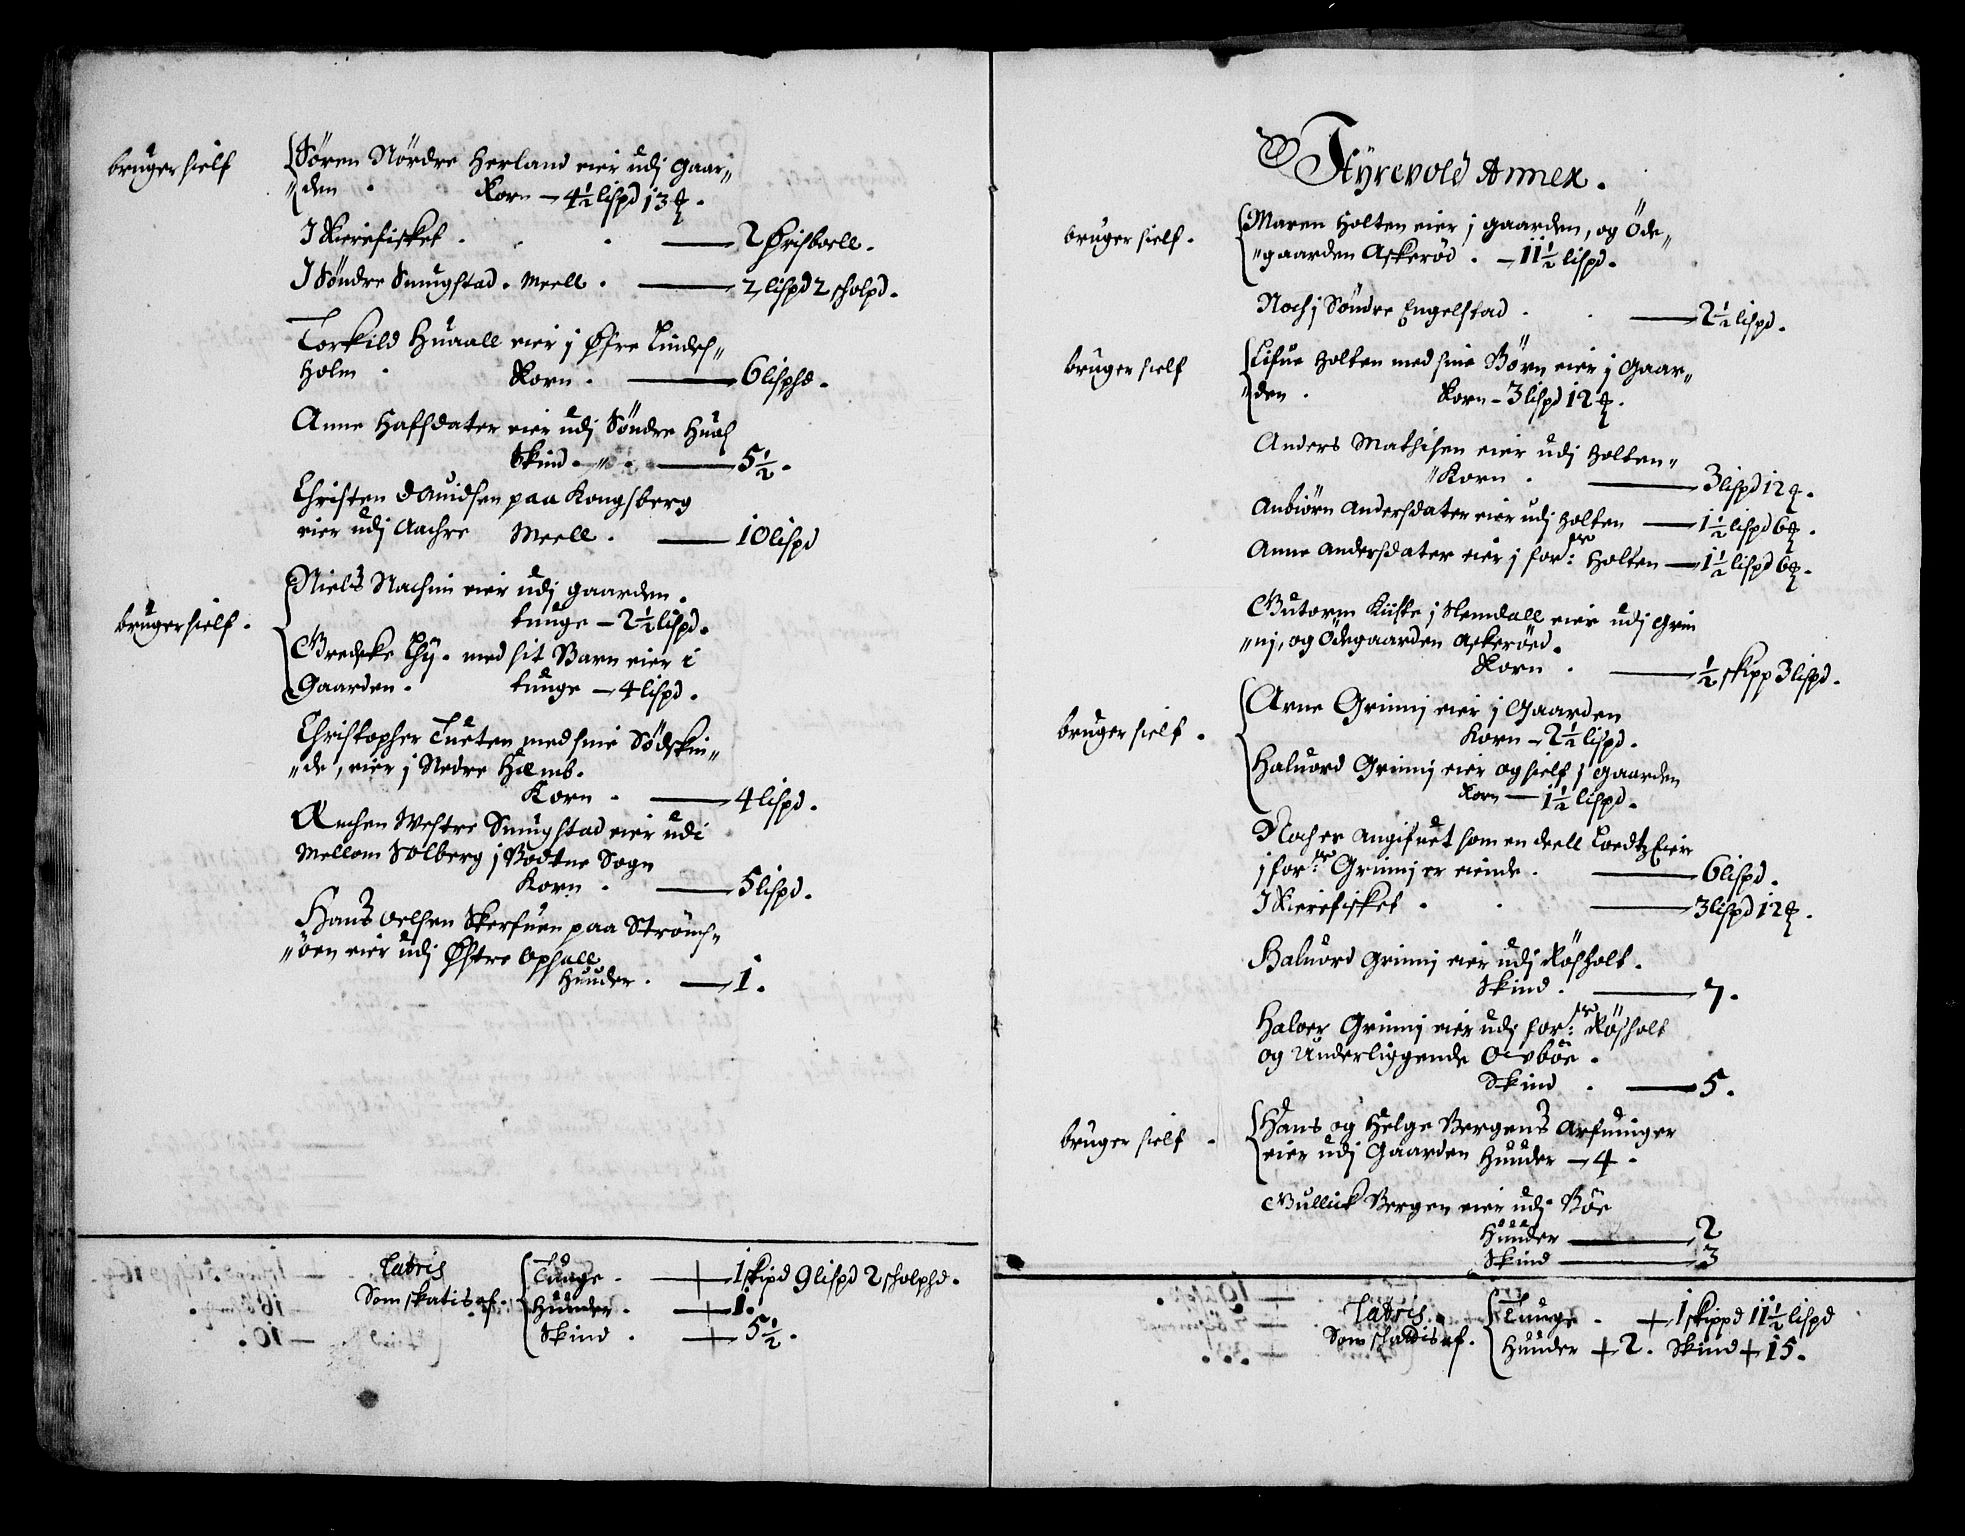 bruger sielf
Sören Nördre Herland eier udj gaar„
„den . Korn — 4½ lispd 13 ℔.
I Kierefisket . . — 2 Øriсboell.
I Söndre Smugstad . Meell . — 2 lispd 2 scholpd.
Torkild Huaall eier j Øfre Lindes„
Holm . Korn . — 6 lisphd.
Anne Hafsdater eier udj Söndre Huas
Skind . „ . — 5½.
Christen dauidsen paa Kongsberg
eier udj Aachre Meell . — 10 lispd
bruger sielf .
Niels Nachim eier udj gaarden.
tunge — 2½ lispd.
Gredeke Lÿ . med sit Barn eier i
Gaarden . tunge — 4 lispd.
Christopher Tueten med sine Södskin„
„de, eier j Nedre Hæmb.
Korn . — 4 lispd.
Anchen Westre Smugstad eier udi
Mellom Solberg j Bodtne Sogn
Korn . — 5 lispd.
Hans Oelsen Skerfuen paa Ströms„
„öen eier udj Østre Ophall
Huuder . — 1.
Latris
Som skatis af .
Tunge . + 1 skipd 9 lispd 2 scholphd.
Huuder . + 1.
Skind . + 5½.
Fyrevold Annex .
bruger sielf .
Maren Holten eier j gaarden, og Öde„
„gaarden Askeröd . — 11½ lispd.
Noch j Söndre Engelstad . . — 2½ lispd.
bruger sielf
Lifue Holten med sine Börn eier j Gaar„
„den . Korn — 3 lispd 12 ℔.
Anders Mathisen eier udj Holten„
„Korn . — 3 lispd 12 ℔.
Anbiörn Andersdater eier udj Holten — 1½ lispd 6 ℔.
Anne Andersdater eier j for: ne Holten — 1½ lispd 6 ℔.
Gutorm Kiiste j Nemdall eier udj Grim
„nj, og Ödegaarden Askeröed.
Korn . — ½ skipp 3 lispd.
bruger sielf .
Arne Grimnj eier j Gaarden
Korn — 2½ lispd.
Haluord Grimnj eier og sielf j gaarden
Korn — 1½ lispd.
Noch er angifuet som en deell Loedtz Eiere
j for: ne Grimnj er eiende . — 6 lispd.
I Kierefisket . . — 3 lispd 12 ℔.
Haluord Grimnj eier udj Rösholt.
Skind . — 7.
Haloer Grimnj eier udj for: ne Rösholt
og Underliggende Owböe .
Skind . — 5.
bruger sielf .
Hans og Helge Bergens Arfuinger
eier udj Gaarden Huuder — 4 .
Gullick Bergen eier udj Böe
Huuder — 2
Skind — 3
Latris
Som skattis af .
Tunge . + 1 skippd 11½ lispd
Huuder + 2 . Skind + 15.